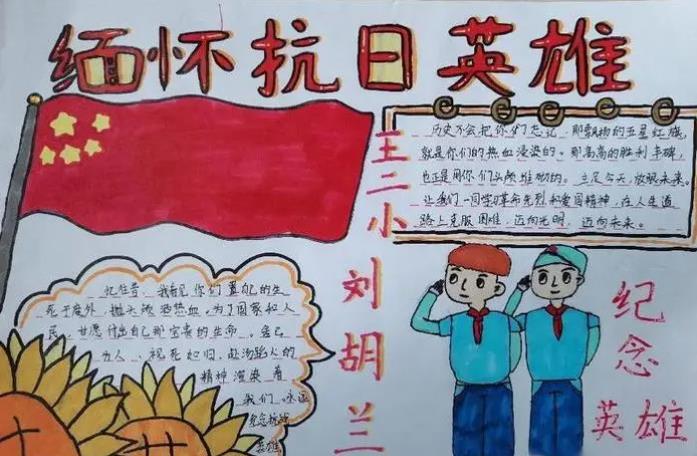 缅怀抗日英雄
历史不会把你们忘记，那飘扬的五星红旗，
就是你们的热血浸染的。那高高的胜利丰碑，
也正是用你们头颅堆砌的。立足今天，放眼未来。
让我们一同学习革命先烈和爱国精神，在人生道
路上克服困难，迈向光明，迈向未来。
王二小
刘胡兰
我看见你们置自己的生
死于度外，抛头颅洒热血。为了国家和人
民，甘愿付出自己那宝贵的生命。舍己
为人、视死如归、赴汤蹈火的
精神渲染着
我们。永远
英雄
纪念
英雄